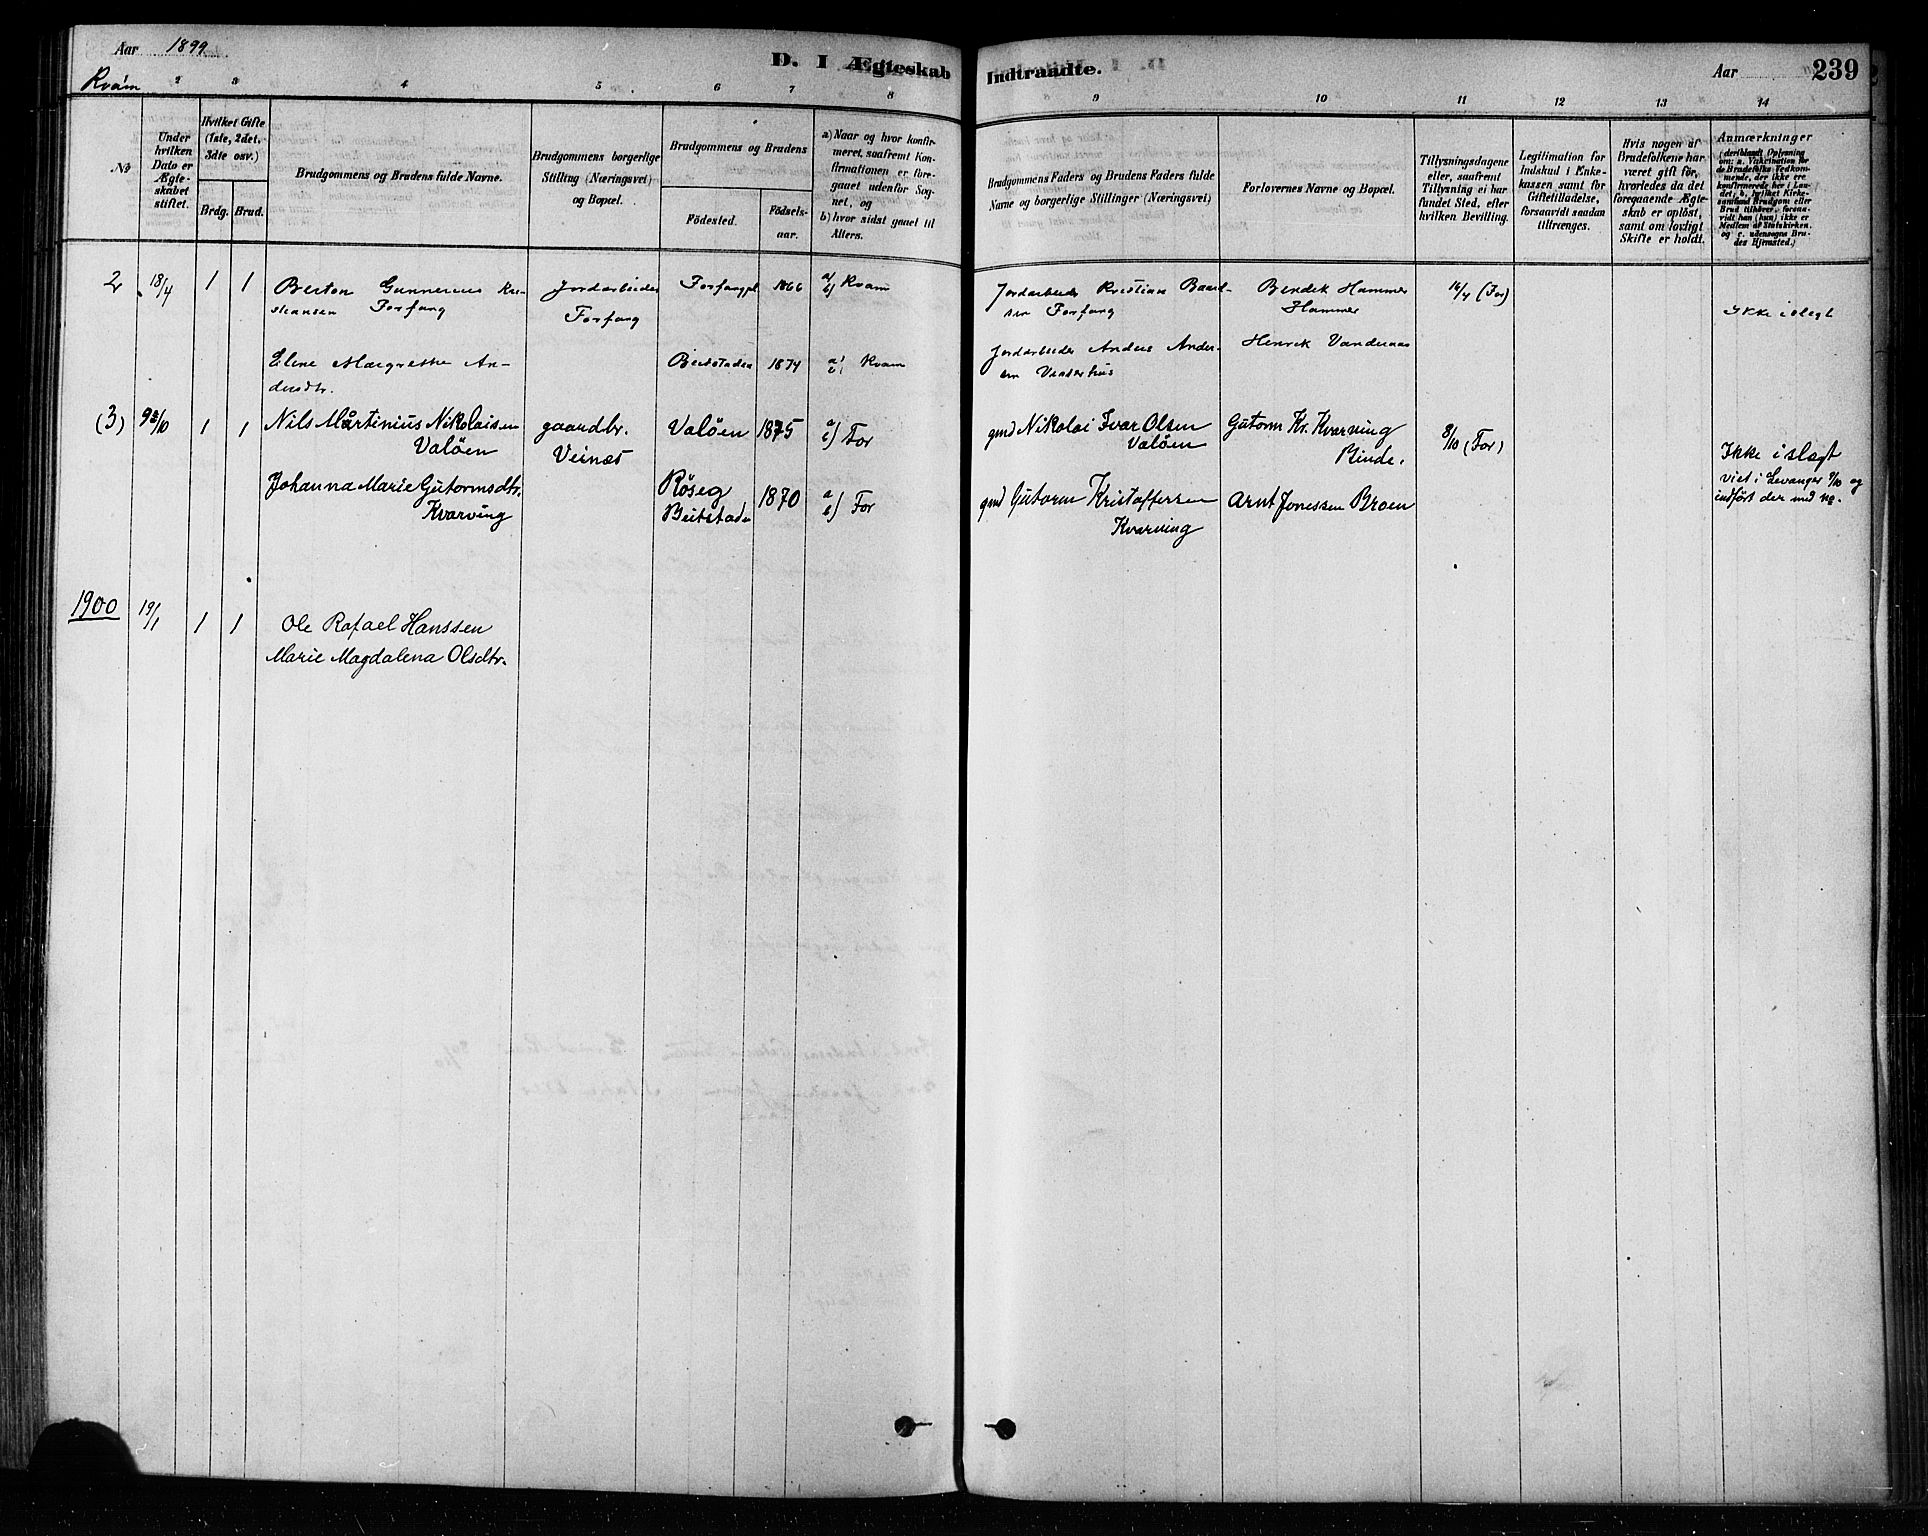 Aar 1899
D. I Ægteskab Indtraadte.
Aar 239
Kvam
2 3 4 5 6 7 8 9 10 11 12 13 14
No
Under hvilken Dato er Ægteskabet stiftet.
Hvilket Gifte (1ste, 2det, 3die osv.)
Brdg. Brud.
Brudgommens og Brudens fulde Navne.
Brudgommens borgerlige Stilling (Næringsvei) og Bopæl.
Brudgommens og Brudens
Fødested. Fødselsaar.
a) Naar og hvor konfirmeret, saafremt Konfirmationen er foregaaet udenfor Sognet, og
b) hvor sidst gaaet til Alters.
Brudgommens Faders og Brudens Faders fulde Navne og borgerlige Stillinger (Næringsvei)
Forlovernes Navne og Bopæl.
Tillysningsdagene eller, saafremt Tillysning ei har fundet Sted, efter hvilken Bevilling.
Legitimation for Indskud i Enkekassen samt for Giftetilladelse, forsaavidt saadan tiltrænges.
Hvis nogen af Brudefolkene har været gift før, hvorledes da det foregaaende Ægteskab er opløst, samt om lovligt Skifte er holdt.
Anmærkninger
(deriblandt Oplysning om: a. Vakcination for de Brudefolks Vedkommende, der ikke ere konfirmerede her i Landet, b. hvilket Kirkesamfund Brudgom eller Brud tilhører, forsaavidt han (hun) ikke er Medlem af Statskirken, og c. udensogns Brudes Hjemsted.)
2 18/4 1 1 Berton Gunnerius Kristiansen Forfang
Jordarbeider Forfang
Forfangpl 1866 a/b) Kvam
Jordarbeider Kristian Baardsen Forfang
Bendik Hammer Hammer
16/4 (For)
Ikke i slegt
Elene Margrethe Andersdtr.
Beitstaden 1874 a/b) Kvam
Jordarbeider Anders Andersen
Henrik Vanderaas
(3) 1 1 Nils Martinius Nikolaisen Valöen
gaardbr. Veines
Valöen 1875 a/b) For
gmd Nikolai Ivar Olsen Valöen
Gutorm Kr. Kvarving Binde.
8/10 (For)
Ikke i slegt
viet i Levanger 9/10 og
indført der med no.
Johanna Marie Gutormsdtr. Kvarving
Röseg Beitstaden 1870 a/b) For
gmd Gutorm Kristoffersen Kvarving
Arnt Jonessen Broen
1900 19/1 1 1 Ole Rafael Hanssen
Marie Magdalena Olsdtr.